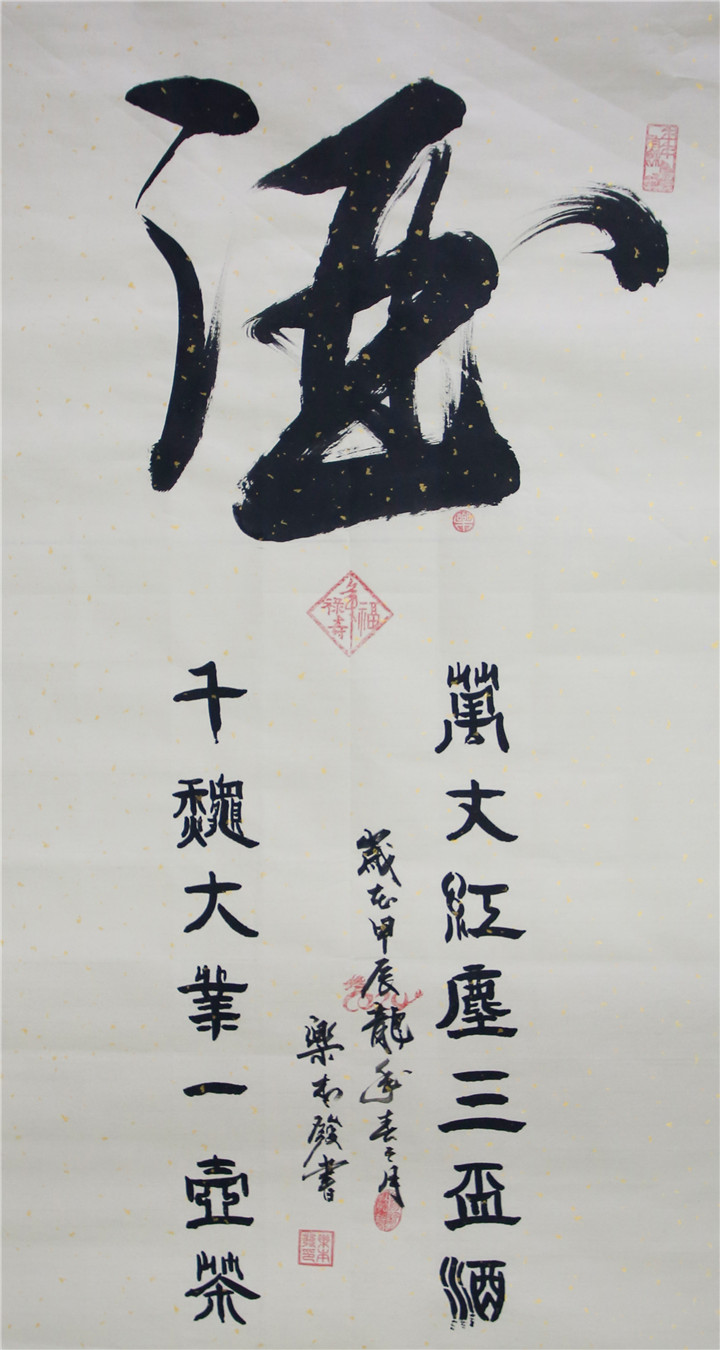 酒
福祿壽
萬丈紅塵三盃酒
千龝大業一壺茶
歲在甲辰龍年春二月
樂本發書